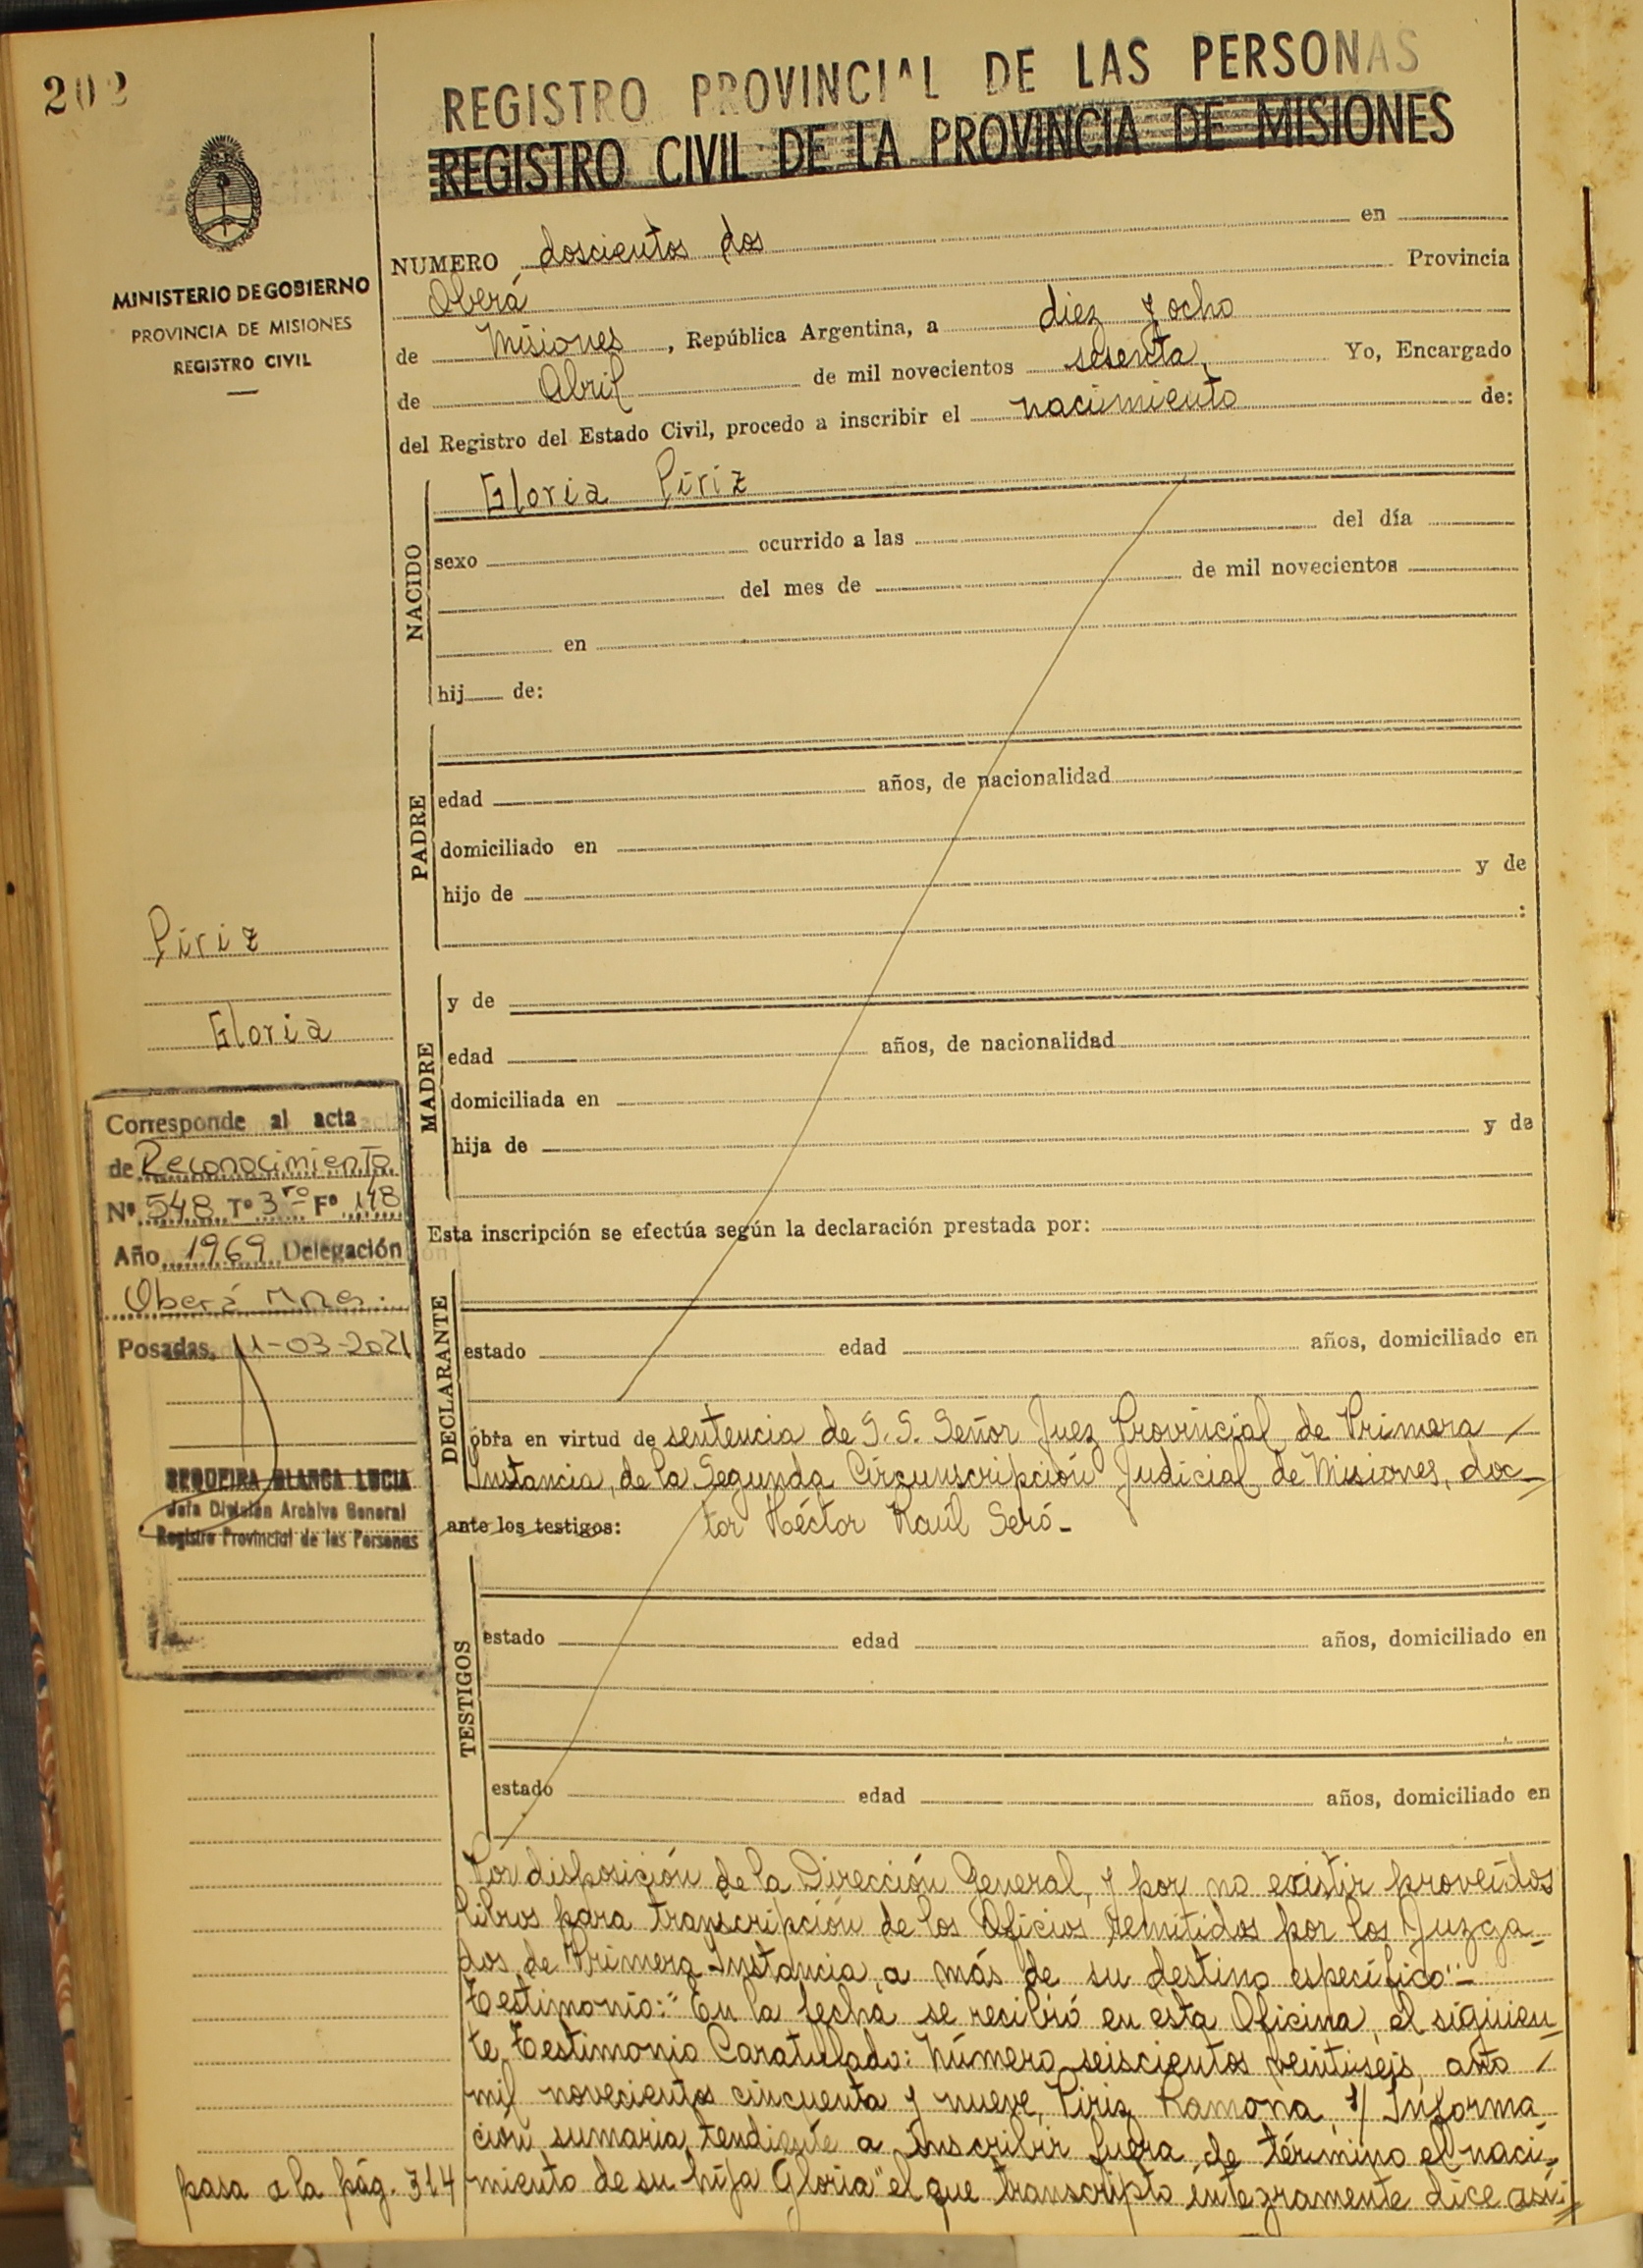 202
REGISTRO PROVINCIAL DE LAS PERSONAS
REGISTRO CIVIL DE LA PROVINCIA DE MISIONES
MINISTERIO DE GOBIERNO
PROVINCIA DE MISIONES
REGISTRO CIVIL
NUMERO doscientos dos en
Oberá Provincia
de Misiones, República Argentina, a diez y ocho
de Abril de mil novecientos sesenta, Yo, Encargado
del Registro del Estado Civil, procedo a inscribir el nacimiento de:
NACIDO
Gloria Piriz
sexo ocurrido a las del día
del mes de de mil novecientos
en
hij de:
PADRE
edad años, de nacionalidad
domiciliado en
hijo de y de
:
Piriz
Gloria
MADRE
y de
edad años, de nacionalidad
domiciliada en
hija de y de
Corresponde al acta
de Reconocimiento
Nº 548 Tº 3ro Fº 118
Año 1969 Delegación
Oberá Mnes.
Posadas, 11-03-2021
SEQUEIRA BLANCA LUCIA
Jefa División Archivo General
Registro Provincial de las Personas
Esta inscripción se efectúa según la declaración prestada por:
DECLARANTE
estado edad años, domiciliado en
obra en virtud de sentencia de S. S. Señor Juez Provincial de Primera /
Instancia, de la Segunda Circunscripción Judicial de Misiones, doc-
ante los testigos: tor Héctor Raúl Seró-
TESTIGOS
estado edad años, domiciliado en
estado edad años, domiciliado en
Por disposición de la Dirección General, y por no existir proveídos
libros para transcripción de los Oficios remitidos por los Juzga-
dos de Primera Instancia, a más de su destino específico"-
Testimonio:" En la fecha se recibió en esta Oficina, el siguien-
te Testimonio Caratulado: Número seiscientos veintiseis, año /
mil novecientos cincuenta y nueve, Piriz Ramona, s/ Informa-
ción sumaria tendiente a inscribir fuera de término el naci-
miento de su hija Gloria" el que transcripto íntegramente dice así:
pasa a la pág. 314